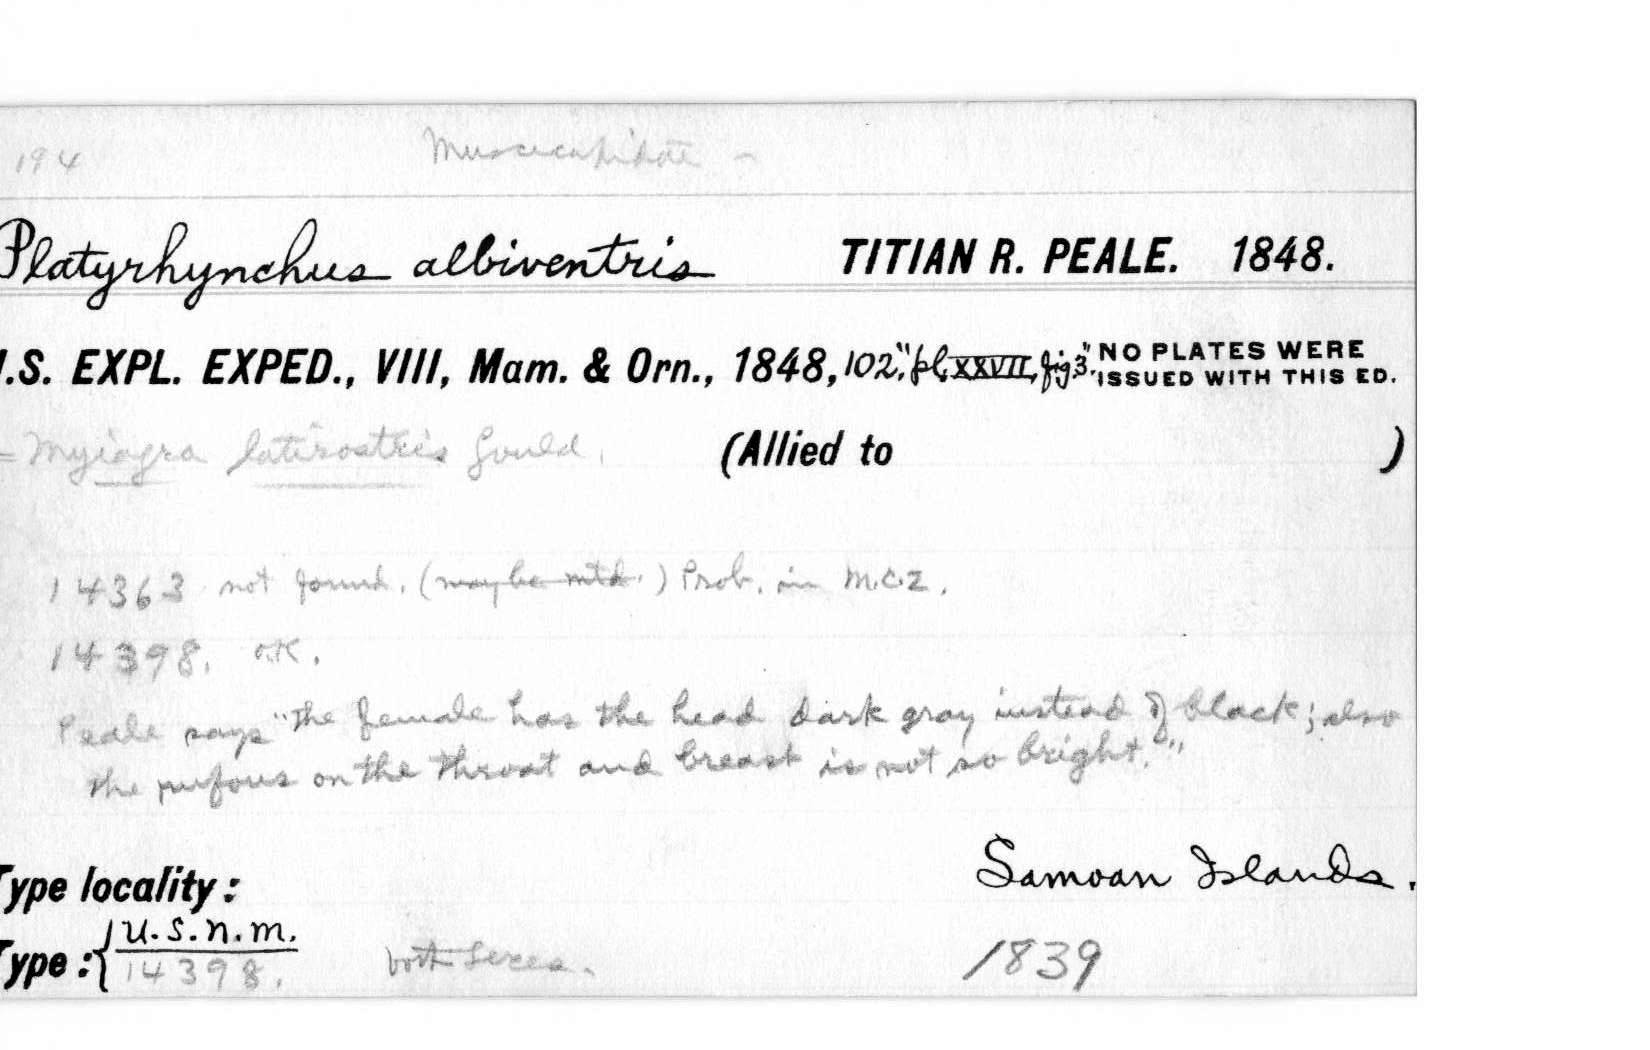 194 Muscicapidae –
Platyrhynchus albiventris TITIAN R. PEALE. 1848.
.S. EXPL. EXPED., VIII, Mam. & Orn., 1848, 102, "pl. XXVII, fig 3." NO PLATES WERE
ISSUED WITH THIS ED.
= Myiagra latirostris Gould. (Allied to )
14363 not found. (may be mtd.) Prob. in M.C.Z.
14398. O.K.
Peale says "The female has the head dark gray instead of black; also
the rufous on the throat and breast is not so bright."
Type locality: Samoan Islands.
Type: { U.S.N.M.
14398. both sexes. 1839